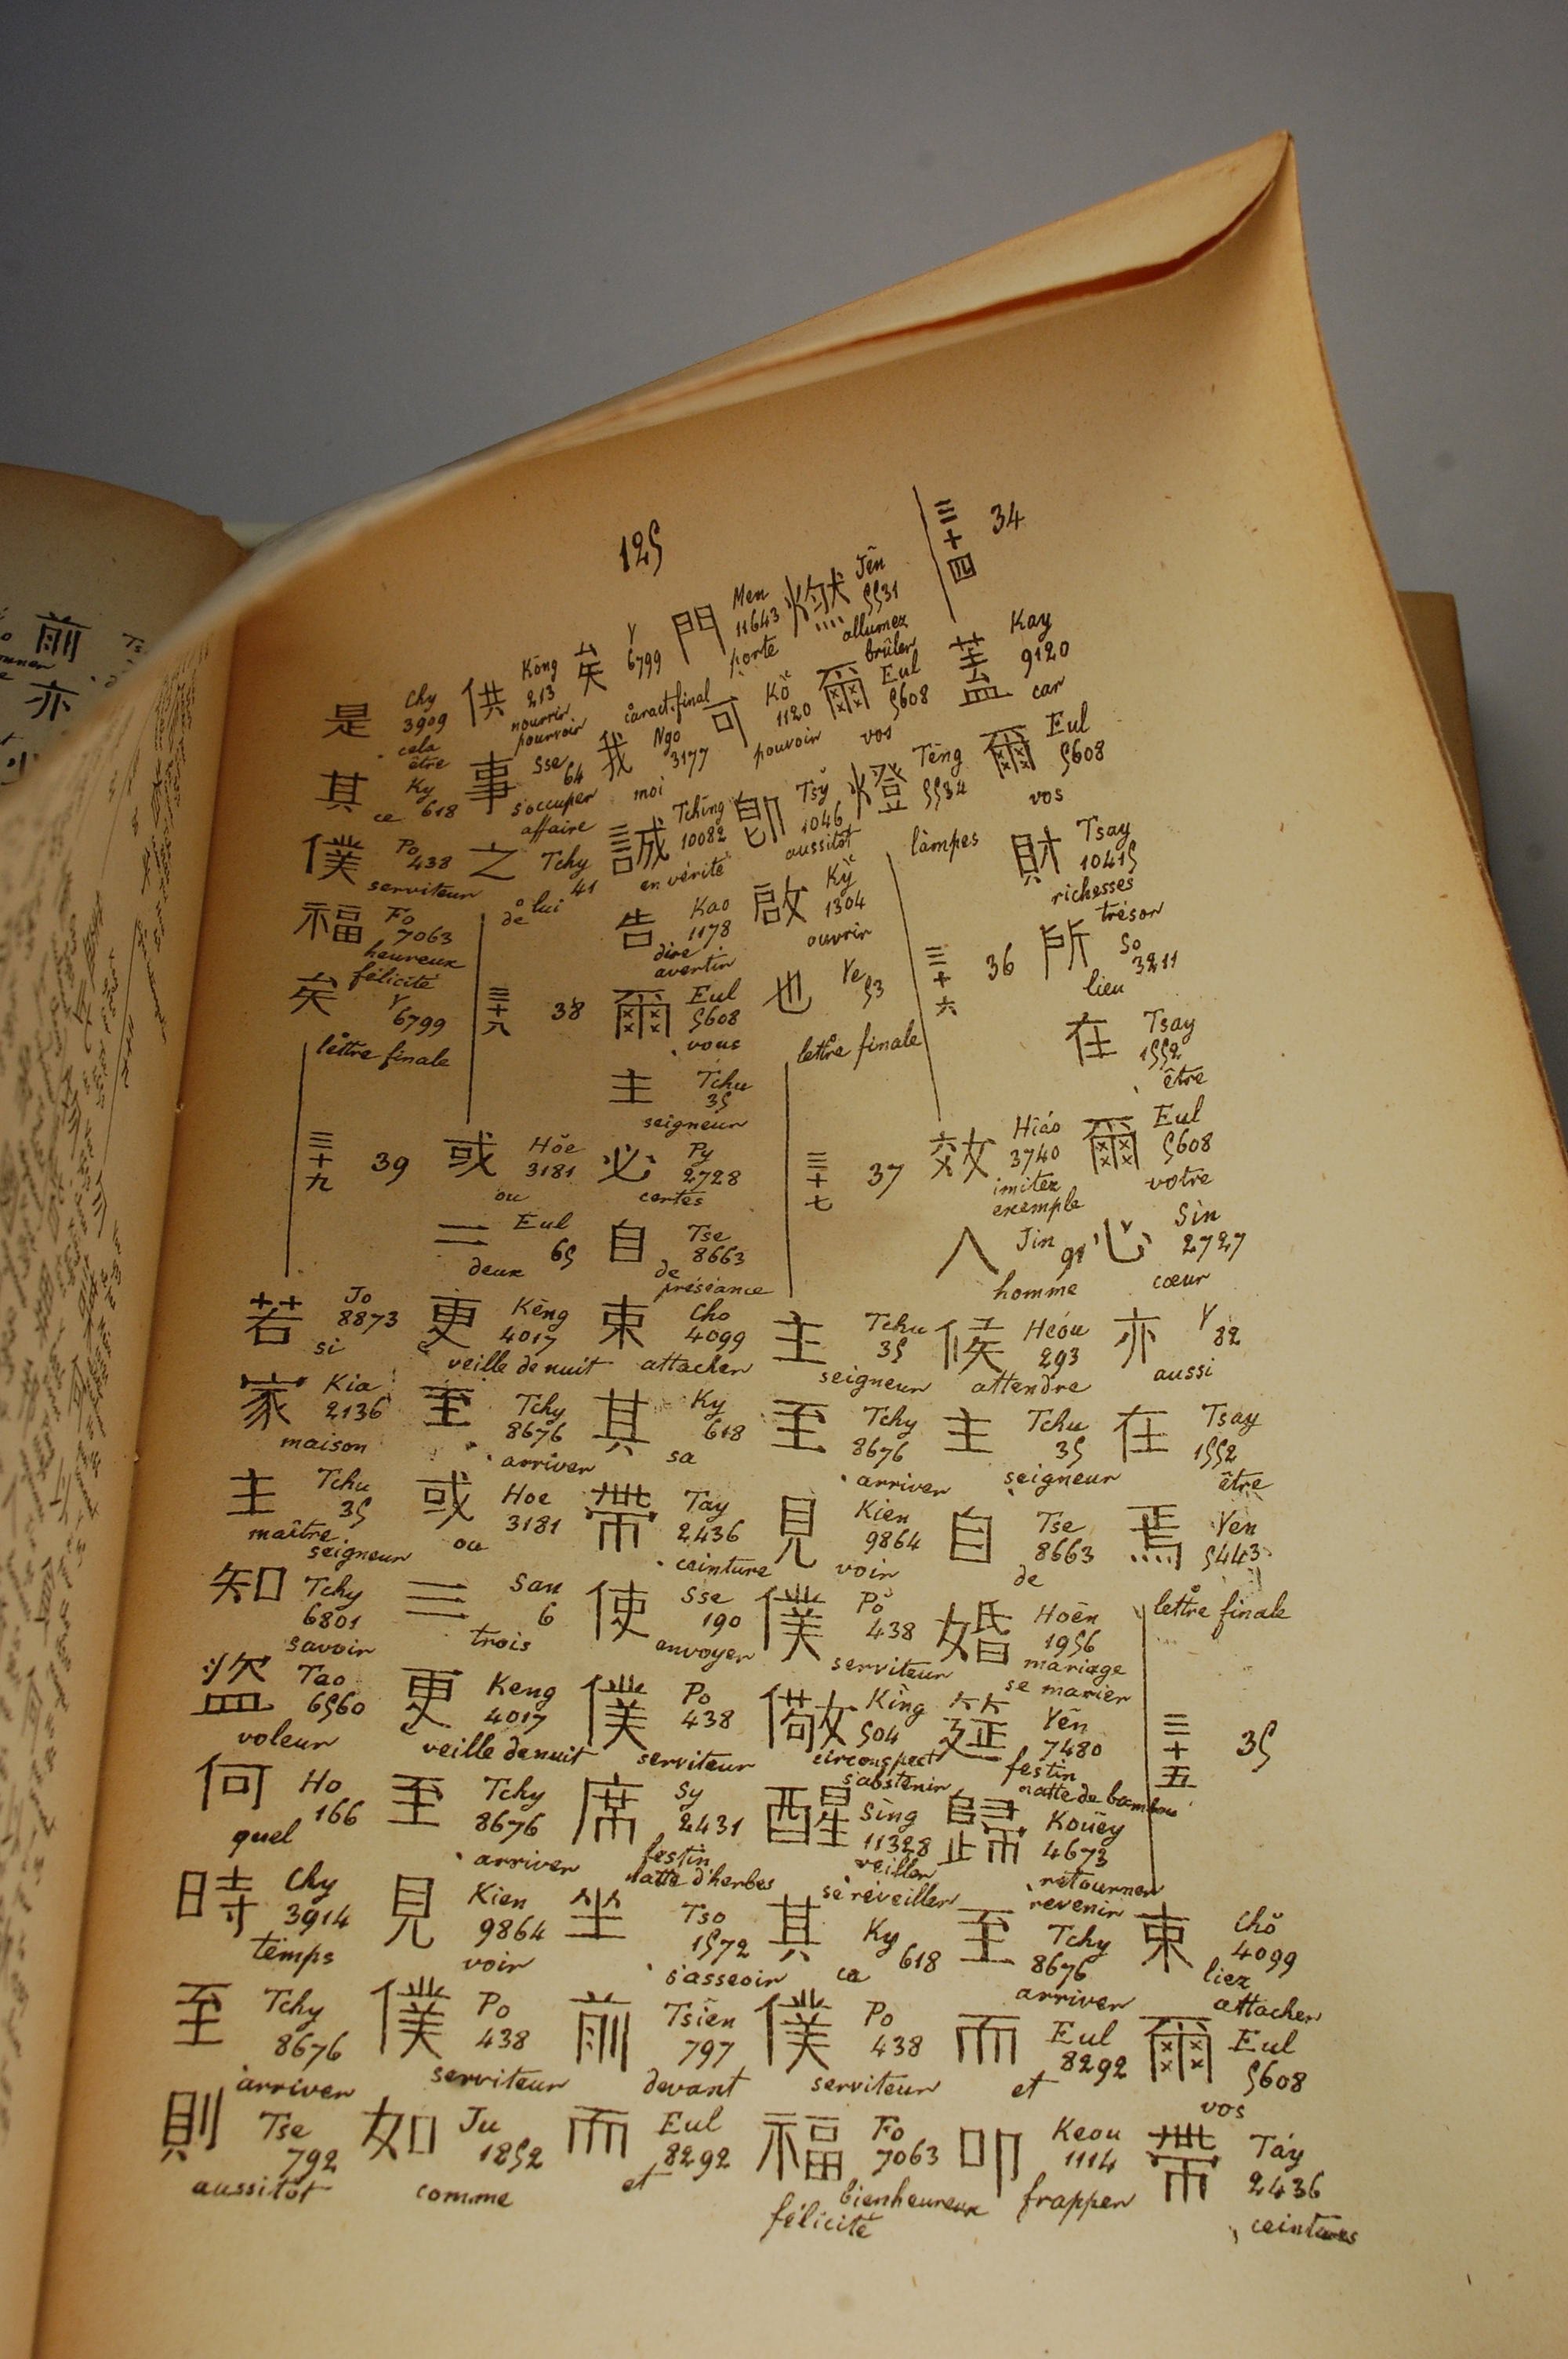 125
三十四 34
蓋 Kay 9120 car
爾 Eul 5608 vos
財 Tsay 10415 richesses trésor
所 So 3211 lieu
在 Tsay 1552 être
爾 Eul 5608 votre
心 Sin 2727 cœur
亦 Y 82 aussi
在 Tsay 1552 être
焉 Yen 5443 lettre finale
三十五 35
束 Chŏ 4099 liez attacher
爾 Eul 5608 vos
帶 Táy 2436 ceintures
燃 Jên 5531 allumez brûler
爾 Eul 5608 vos
燈 Tēng 5534 lampes
三十六 36
效 Hiáo 3740 imitez exemple
人 Jin 91 homme
候 Heóu 293 attendre
主 Tchu 35 seigneur
自 Tse 8663 de
婚 Hoēn 1956 mariage se marier
筵 Yên 7480 festin natte de bambou
歸 Kouēy 4673 retourner revenir
至 Tchy 8676 arriver
而 Eul 8292 et
叩 Keou 1114 frapper
門 Men 11643 porte
可 Kŏ 1120 pouvoir
卽 Tsy̆ 1046 aussitôt
啟 Ky̆ 1304 ouvrir
也 Ye 53 lettre finale
三十七 37
主 Tchu 35 seigneur
至 Tchy 8676 arriver
見 Kien 9864 voir
僕 Pŏ 438 serviteur
儆 Kìng 504 circonspect s'abstenir
醒 Sing 11328 veiller se réveiller
其 Ky 618 ca
僕 Po 438 serviteur
福 Fo 7063 bienheureux félicité
矣 Y 6799 caract. final
我 Ngo 3177 moi
誠 Tchîng 10082 en vérité
告 Kao 1178 dire avertir
爾 Eul 5608 vous
主 Tchu 35 seigneur
必 Py 2728 certes
自 Tse 8663 de préséance
束 Cho 4099 attacher
其 Ky 618 sa
帶 Tay 2436 ceinture
使 Sse 190 envoyer
僕 Po 438 serviteur
席 Sy 2431 festin natte d'herbes
坐 Tso 1572 s'asseoir
前 Tsiên 797 devant
而 Eul 8292 et
供 Kōng 213 nourrir pourvoir
事 Sse 64 s'occuper affaire
之 Tchy 41 de lui
三十八 38
或 Hŏe 3181 ou
二 Eul 65 deux
更 Kēng 4017 veille de nuit
至 Tchy 8676 arriver
或 Hoe 3181 ou
三 San 6 trois
更 Keng 4017 veille de nuit
至 Tchy 8676 arriver
見 Kien 9864 voir
僕 Po 438 serviteur
如 Ju 1852 comme
是 Chy 3909 cela être
其 Ky 618 ce
僕 Po 438 serviteur
福 Fo 7063 heureux félicité
矣 Y 6799 lettre finale
三十九 39
若 Jo 8873 si
家 Kia 2136 maison
主 Tchu 35 maître seigneur
知 Tchy 6801 savoir
盜 Tao 6560 voleur
何 Ho 166 quel
時 Chy 3914 temps
至 Tchy 8676 arriver
則 Tse 792 aussitôt